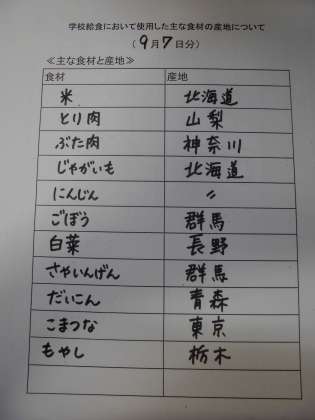 学校給食において使用した主な食材の産地について
(9月7日分)
≪主な食材と産地≫
食材 産地
米 北海道
とり肉 山梨
ぶた肉 神奈川
じゃがいも 北海道
にんじん 〃
ごぼう 群馬
白菜 長野
さやいんげん 群馬
だいこん 青森
こまつな 東京
もやし 栃木